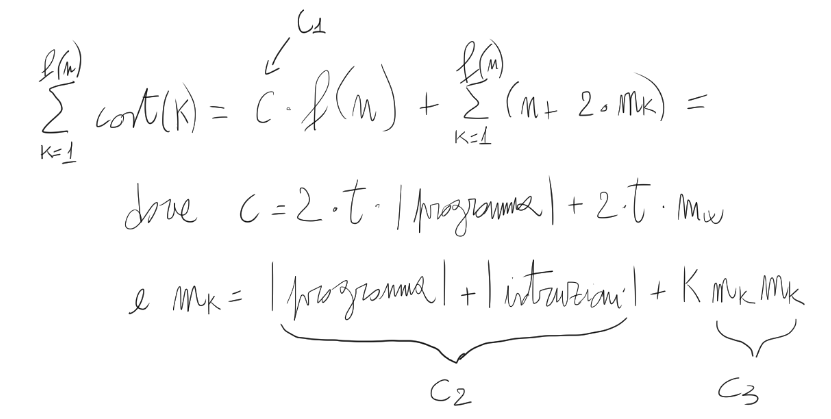 C₁
∑_{k=1}^{f(n)} cost(k) = C · f(n) + ∑_{k=1}^{f(n)} (n + 2 · m_k) =
dove c = 2 · t · |programma| + 2 · t · m_w
e m_k = |programma| + |istruzioni| + k m_k m_k
C₂ C₃